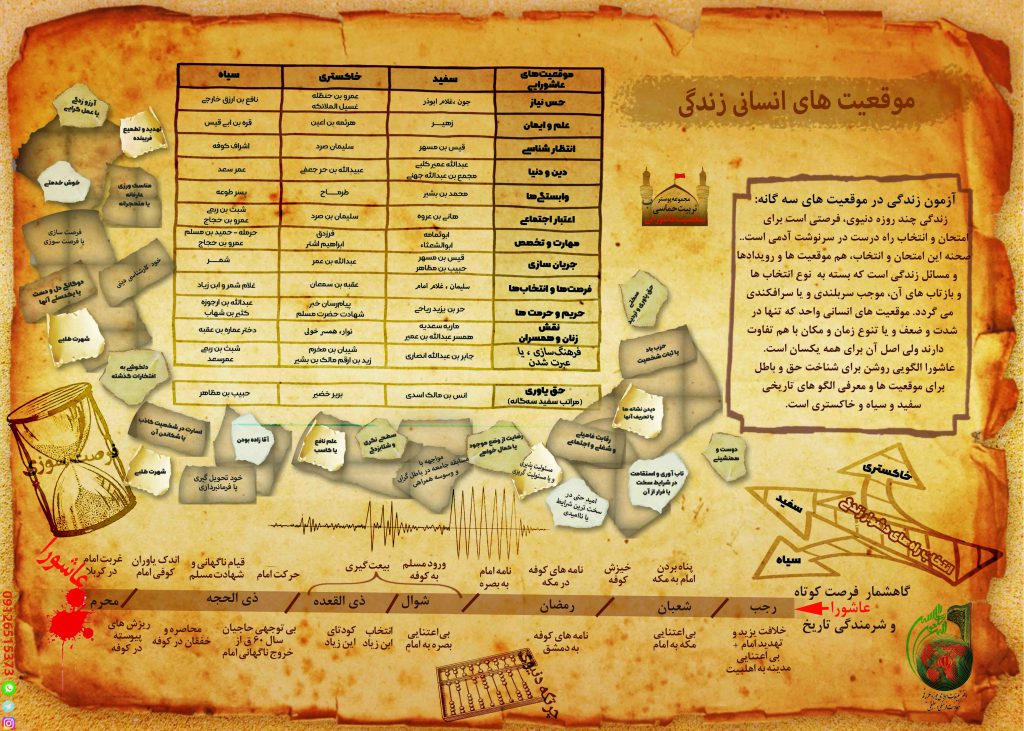 موقعیت های انسانی زندگی
مجموعه پوستر
تربیت حماسی
آزمون زندگی در موقعیت های سه گانه:
زندگی چند روزه دنیوی، فرصتی است برای
امتحان و انتخاب راه درست در سرنوشت آدمی است..
صحنه این امتحان و انتخاب، هم موقعیت ها و رویدادها
و مسائل زندگی است که بسته به نوع انتخاب ها
و بازتاب های آن، موجب سربلندی و یا سرافکندگی
می گردد. موقعیت های انسانی واحد که تنها در
شدت و ضعف و یا تنوع زمان و مکان با هم تفاوت
دارند ولی اصل آن برای همه یکسان است.
عاشورا الگویی روشن برای شناخت حق و باطل
برای موقعیت ها و معرفی الگو های تاریخی
سفید و سیاه و خاکستری است.
موقعیت‌های عاشورایی سفید خاکستری سیاه
حس نیاز جون ،غلام ابوذر عمرو بن حنظله غسیل الملائکه نافع بن ازرق خارجی
علم و ایمان زهیر هرثمه بن اعین قره بن ابی قیس
انتظار شناسی قیس بن مسهر سلیمان صرد اشراف کوفه
دین و دنیا عبدالله عمیر کلبی مجمع بن عبدالله جهنی عبیدالله بن حر جعفی عمر سعد
وابستگی‌ها محمد بن بشیر طرماح پسر طوعه
اعتبار اجتماعی هانی بن عروه سلیمان بن صرد شبث بن ربعی عمرو بن حجاج
مهارت و تخصص ابوثمامه ابوالشعثاء فرزدق ابراهیم اشتر حرمله - حمید بن مسلم عمرو بن حجاج
جریان سازی قیس بن مسهر حبیب بن مظاهر عبدالله بن عمر شمر
فرصت‌ها و انتخاب‌ها سلیمان ، غلام امام عقبه بن سمعان غلام شمر و ابن زیاد
حریم و حرمت ها حر بن یزید ریاحی پیام‌رسان خبر شهادت حضرت مسلم عبدالله بن ارجوزه کثیر بن شهاب
نقش زنان و همسران ماریه سعدیه همسر عبدالله بن عمیر نوار، همسر خولی دختر عماره بن عقبه
فرهنگ‌سازی ، یا عبرت شدن جابر بن عبدالله انصاری شیبان بن مخرم زید بن ارقم مالک بن بشیر شبث بن ربعی عمرسعد
حق یاوری (مراتب سفید سه‌گانه) انس بن مالک اسدی بریر خضیر حبیب بن مظاهر
آرزو زدگی
یا عمل گرایی
تهدید و تطمیع
فریبنده
خوش خدمتی
مناسک ورزی
عارفانه
یا متحجرانه
فرصت سازی
یا فرصت سوزی
خود کارشناسی دینی
دوگانگی دل و دست
یا یکدستی آنها
شهرت طلبی
دلخوشی به
افتخارات گذشته
حق یاوری و تردید
حزب باد
یا ثبات شخصیت
دیدن نشانه ها
یا تحریف آنها
دوست و
همنشینی
رقابت فامیلی
و شغلی و اجتماعی
تاب آوری و استقامت
در شرایط سخت
یا فرار از آن
رضایت از وضع موجود
یا کمال خواهی
مسئولیت پذیری
و یا مسئولیت گریزی
امید حتی در
سخت ترین شرایط
یا ناامیدی
سطحی نگری
و شتابزدگی
مواجهه با
مسابقه جامعه در باطل گرایی
و وسوسه همراهی
علم نافع
یا کاسب
آقا زاده بودن
خود تحویل گیری
یا فرمانبرداری
اسارت در شخصیت کاذب
یا شکاندن آن
شهرت طلبی
فرصت سوزی
خاکستری
سفید
سیاه
انتخاب راه های دشوار زندگی
گاهشمار فرصت کوتاه
عاشورا
و شرمندگی تاریخ
پناه بردن
امام به مکه
خیزش
کوفه
نامه های کوفه
در مکه
نامه امام
به بصره
ورود مسلم
به کوفه
بیعت گیری
حرکت امام
قیام ناگهانی و
شهادت مسلم
اندک یاوران
کوفی امام
غربت امام
در کربلا
عاشورا
رجب / شعبان / رمضان / شوال / ذی القعده / ذی الحجه / محرم
خلافت یزید و
تهدید امام +
بی اعتنایی
مدینه به اهلبیت
بی اعتنایی
مکه به امام
نامه های کوفه
به دمشق
بی اعتنایی
بصره به امام
انتخاب
ابن زیاد
کودتای
ابن زیاد
بی توجهی حاجیان
سال ۶۰ ق از
خروج ناگهانی امام
محاصره و
خفقان در کوفه
ریزش های
پیوسته
در کوفه
چرتکه دنیوی
09126515373